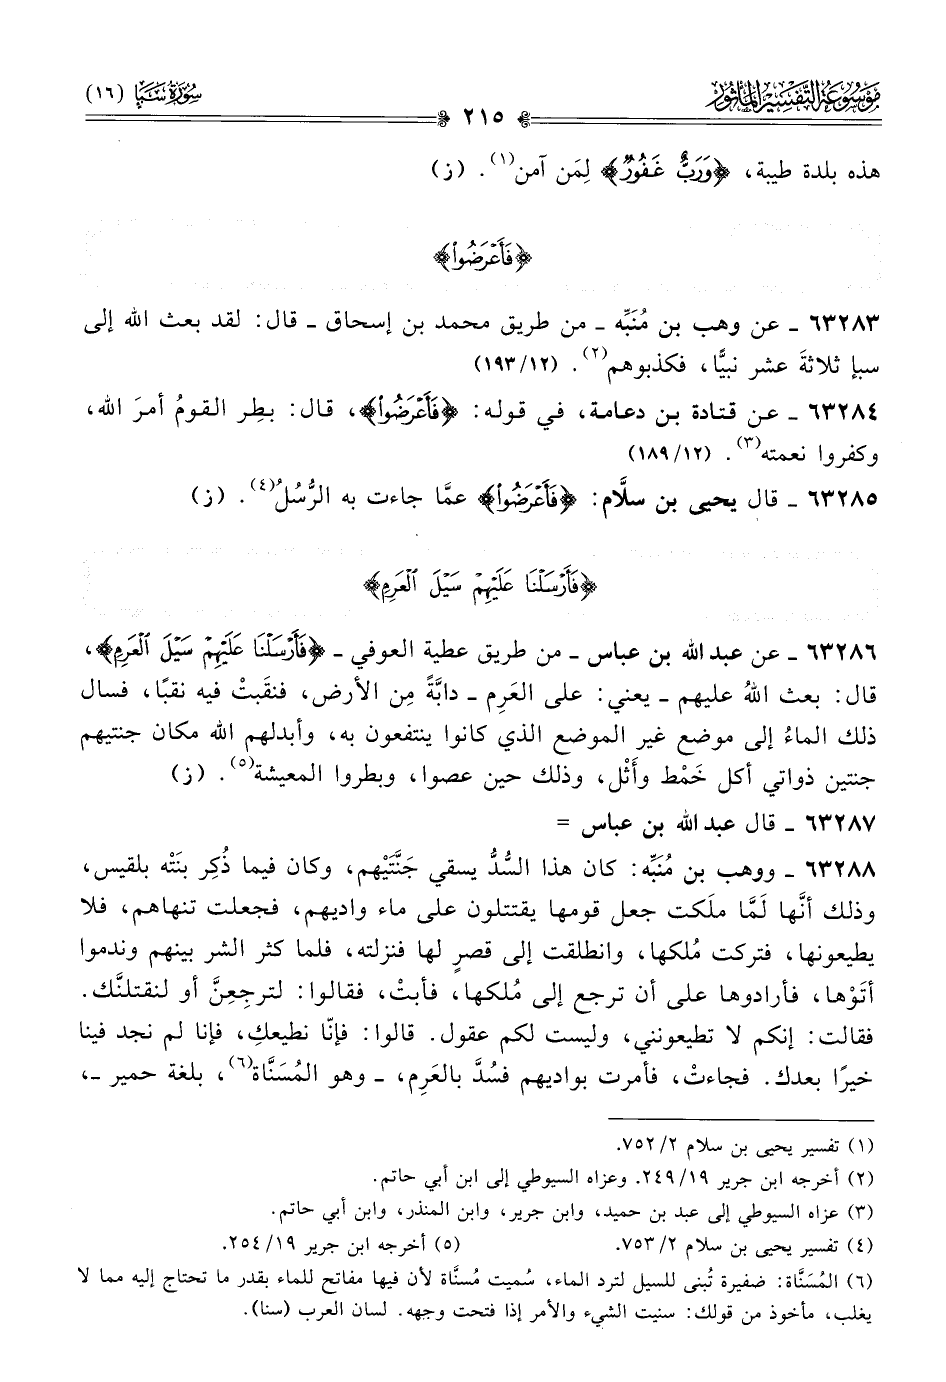 موسوعة التفسير المأثور
سورة سبأ (١٦)
٢١٥
هذه بلدة طيبة، ﴿وَرَبٌّ غَفُورٌ﴾ لِمَن آمن(١). (ز)
﴿فَأَعْرَضُوا۟﴾
٦٣٢٨٣ ـ عن وهب بن مُنَبِّه ـ من طريق محمد بن إسحاق ـ قال: لقد بعث الله إلى
سبإ ثلاثةَ عشر نبيًّا، فكذبوهم(٢). (١٩٣/١٢)
٦٣٢٨٤ ـ عن قتادة بن دعامة، في قوله: ﴿فَأَعْرَضُوا۟﴾، قال: بطِر القومُ أمرَ الله،
وكفروا نعمته(٣). (١٨٩/١٢)
٦٣٢٨٥ ـ قال يحيى بن سلَّام: ﴿فَأَعْرَضُوا۟﴾ عمَّا جاءت به الرُّسُلُ(٤). (ز)
﴿فَأَرْسَلْنَا عَلَيْهِمْ سَيْلَ ٱلْعَرِمِ﴾
٦٣٢٨٦ ـ عن عبد الله بن عباس ـ من طريق عطية العوفي ـ ﴿فَأَرْسَلْنَا عَلَيْهِمْ سَيْلَ ٱلْعَرِمِ﴾،
قال: بعث اللهُ عليهم ـ يعني: على العَرِم ـ دابَّةً مِن الأرض، فنقبَتْ فيه نقبًا، فسال
ذلك الماءُ إلى موضع غير الموضع الذي كانوا ينتفعون به، وأبدلهم الله مكان جنتيهم
جنتين ذواتي أكل خَمْط وأَثْل، وذلك حين عصوا، وبطروا المعيشة(٥). (ز)
٦٣٢٨٧ ـ قال عبد الله بن عباس =
٦٣٢٨٨ ـ ووهب بن مُنَبِّه: كان هذا السُّدُّ يسقي جَنَّتَيْهم، وكان فيما ذُكِر بنَتْه بلقيس،
وذلك أنَّها لَمَّا ملَكت جعل قومها يقتتلون على ماء واديهم، فجعلت تنهاهم، فلا
يطيعونها، فتركت مُلكها، وانطلقت إلى قصرٍ لها فنزلته، فلما كثر الشر بينهم وندموا
أتَوْها، فأرادوها على أن ترجع إلى مُلكها، فأبتْ، فقالوا: لترجِعِنَّ أو لنقتلنَّك.
فقالت: إنكم لا تطيعونني، وليست لكم عقول. قالوا: فإنّا نطيعكِ، فإنا لم نجد فينا
خيرًا بعدك. فجاءتْ، فأمرت بواديهم فسُدَّ بالعَرِم، ـ وهو المُسَنَّاة(٦)، بلغة حمير ـ،
(١) تفسير يحيى بن سلام ٧٥٢/٢.
(٢) أخرجه ابن جرير ٢٤٩/١٩. وعزاه السيوطي إلى ابن أبي حاتم.
(٣) عزاه السيوطي إلى عبد بن حميد، وابن جرير، وابن المنذر، وابن أبي حاتم.
(٤) تفسير يحيى بن سلام ٧٥٣/٢. (٥) أخرجه ابن جرير ٢٥٤/١٩.
(٦) المُسَنَّاة: ضفيرة تُبنى للسيل لترد الماء، سُميت مُسنَّاة لأن فيها مفاتح للماء بقدر ما تحتاج إليه مما لا
يغلب، مأخوذ من قولك: سنيت الشيء والأمر إذا فتحت وجهه. لسان العرب (سنا).